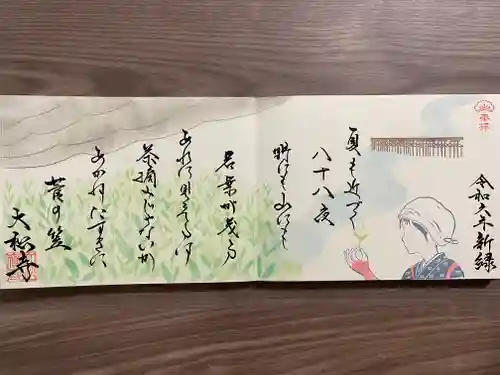 奉拝
令和六年新緑
夏も近づく
八十八夜
野にも山にも
若葉が茂る
あれに見えるは
茶摘みぢやないか
あかねだすきに
菅の笠
大和寺